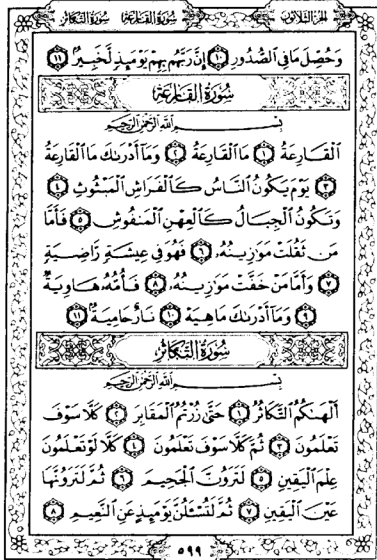 الجزء الثلاثون سورة القارعة سورة التكاثر
وَحُصِّلَ مَا فِي ٱلصُّدُورِ ١٠ إِنَّ رَبَّهُم بِهِمْ يَوْمَئِذٍ لَّخَبِيرٌۢ ١١
سُورَةُ القَارِعَةِ
بِسْمِ ٱللَّهِ ٱلرَّحْمَٰنِ ٱلرَّحِيمِ
ٱلْقَارِعَةُ ١ مَا ٱلْقَارِعَةُ ٢ وَمَآ أَدْرَىٰكَ مَا ٱلْقَارِعَةُ
٣ يَوْمَ يَكُونُ ٱلنَّاسُ كَٱلْفَرَاشِ ٱلْمَبْثُوثِ ٤
وَتَكُونُ ٱلْجِبَالُ كَٱلْعِهْنِ ٱلْمَنفُوشِ ٥ فَأَمَّا
مَن ثَقُلَتْ مَوَٰزِينُهُۥ ٦ فَهُوَ فِى عِيشَةٍ رَّاضِيَةٍ
٧ وَأَمَّا مَنْ خَفَّتْ مَوَٰزِينُهُۥ ٨ فَأُمُّهُۥ هَاوِيَةٌ
٩ وَمَآ أَدْرَىٰكَ مَا هِيَهْ ١٠ نَارٌ حَامِيَةٌۢ ١١
سُورَةُ التَّكَاثُرِ
بِسْمِ ٱللَّهِ ٱلرَّحْمَٰنِ ٱلرَّحِيمِ
أَلْهَىٰكُمُ ٱلتَّكَاثُرُ ١ حَتَّىٰ زُرْتُمُ ٱلْمَقَابِرَ ٢ كَلَّا سَوْفَ
تَعْلَمُونَ ٣ ثُمَّ كَلَّا سَوْفَ تَعْلَمُونَ ٤ كَلَّا لَوْ تَعْلَمُونَ
عِلْمَ ٱلْيَقِينِ ٥ لَتَرَوُنَّ ٱلْجَحِيمَ ٦ ثُمَّ لَتَرَوُنَّهَا
عَيْنَ ٱلْيَقِينِ ٧ ثُمَّ لَتُسْـَٔلُنَّ يَوْمَئِذٍ عَنِ ٱلنَّعِيمِ ٨
٥٩٩